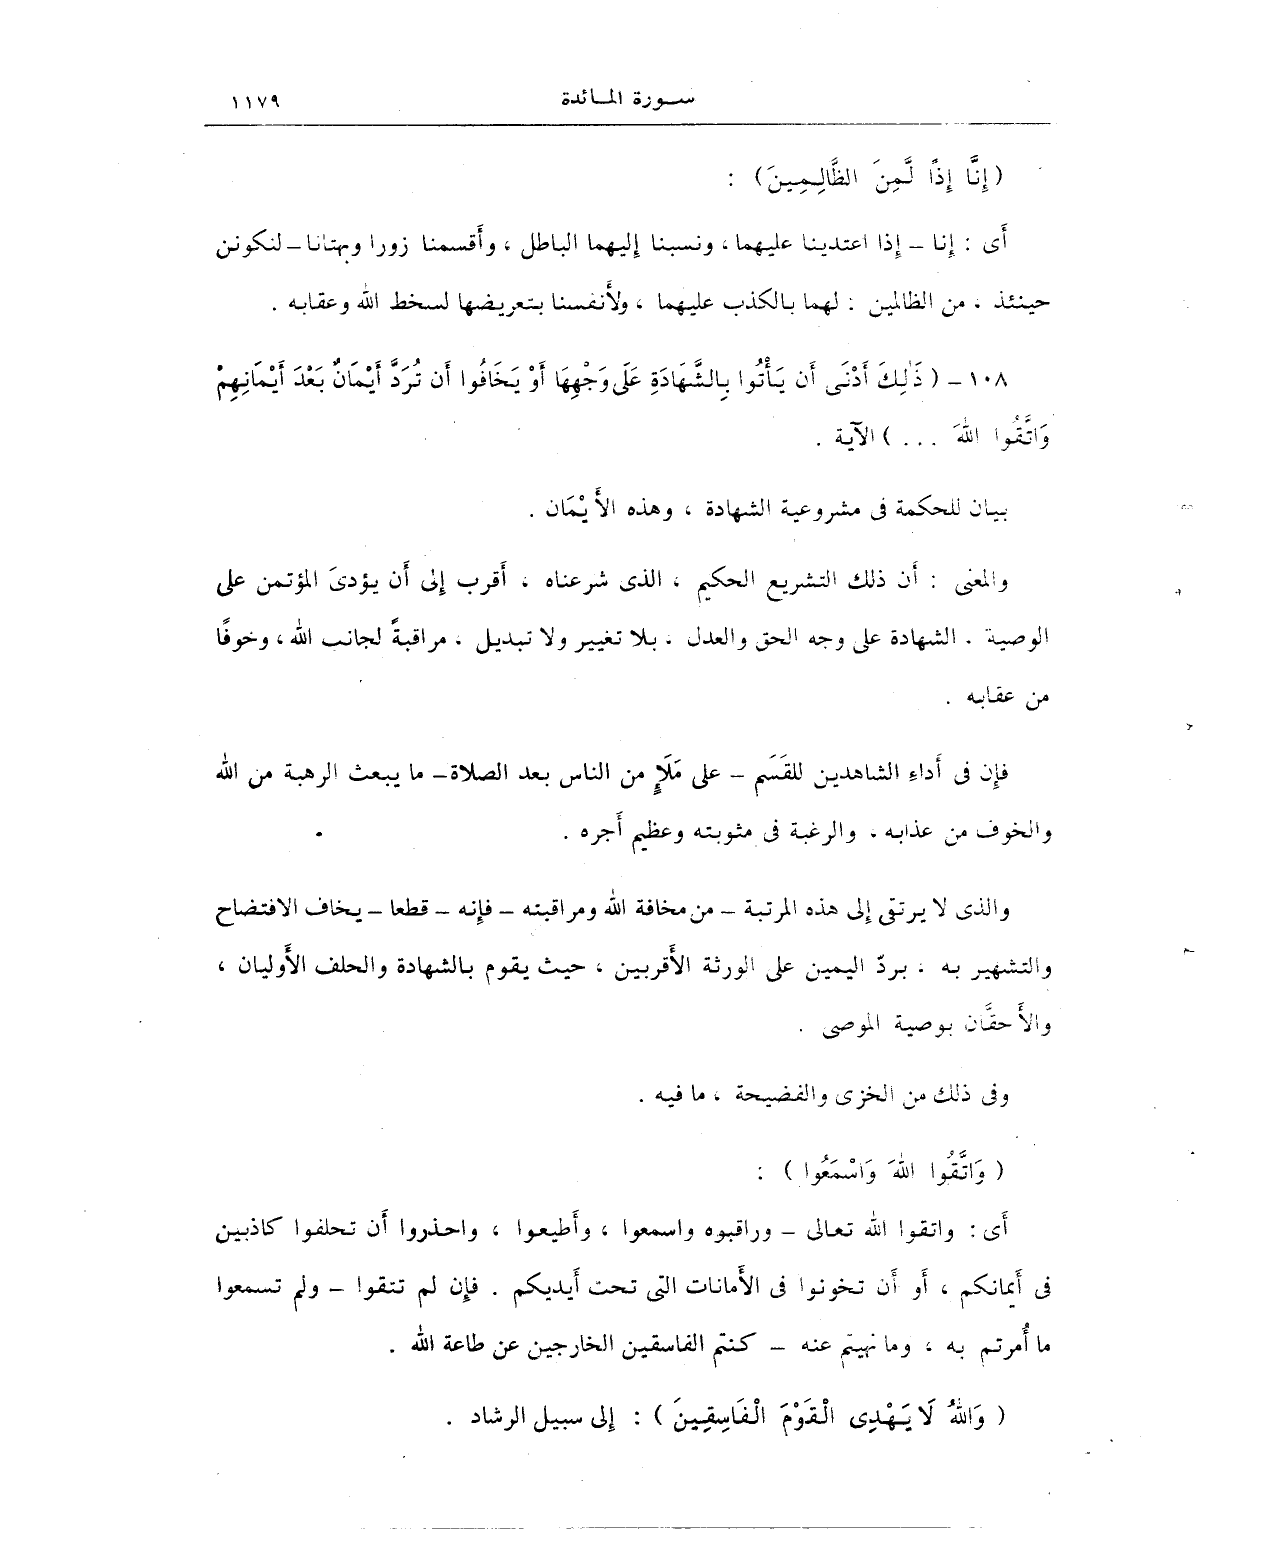 سورة المائدة ١١٧٩
( إِنَّا إِذًا لَّمِنَ الظَّالِمِينَ ) :
أَى : إِنا – إِذا اعتدينا عليهما ، ونسبنا إِليهما الباطل ، وأَقسمنا زورا وبهتانا – لنكونن
حينئذ ، من الظالمين : لهما بالكذب عليهما ، ولأَنفسنا بتعريضها لسخط الله وعقابه .
١٠٨ – ( ذَٰلِكَ أَدْنَى أَن يَأْتُوا بِالشَّهَادَةِ عَلَى وَجْهِهَا أَوْ يَخَافُوا أَن تُرَدَّ أَيْمَانٌ بَعْدَ أَيْمَانِهِمْ
وَاتَّقُوا اللهَ ... ) الآية .
بيان للحكمة فى مشروعية الشهادة ، وهذه الأَيْمَان .
والمعنى : أَن ذلك التشريع الحكيم ، الذى شرعناه ، أَقرب إِلى أَن يؤدىَ المؤتمن على
الوصية . الشهادة على وجه الحق والعدل ، بلا تغيير ولا تبديل ، مراقبةً لجانب الله ، وخوفًا
من عقابه .
فإِن فى أَداءِ الشاهدين للقَسَم – على مَلَإٍ من الناس بعد الصلاة – ما يبعث الرهبة من الله
والخوف من عذابه ، والرغبة فى مثوبته وعظيم أَجره .
والذى لا يرتقى إِلى هذه المرتبة – من مخافة الله ومراقبته – فإِنه – قطعا – يخاف الافتضاح
والتشهير به ، بردّ اليمين على الورثة الأَقربين ، حيث يقوم بالشهادة والحلف الأَوليان ،
والأَحقَّان بوصية الموصى .
وفى ذلك من الخزى والفضيحة ، ما فيه .
( وَاتَّقُوا اللهَ وَاسْمَعُوا ) :
أَى : واتقوا الله تعالى – وراقبوه واسمعوا ، وأَطيعوا ، واحذروا أَن تحلفوا كاذبين
فى أَيمانكم ، أَو أَن تخونوا فى الأَمانات التى تحت أَيديكم . فإِن لم تتقوا – ولم تسمعوا
ما أُمرتم به ، وما نهيتم عنه – كنتم الفاسقين الخارجين عن طاعة الله .
( وَاللهُ لَا يَهْدِى الْقَوْمَ الْفَاسِقِينَ ) : إِلى سبيل الرشاد .